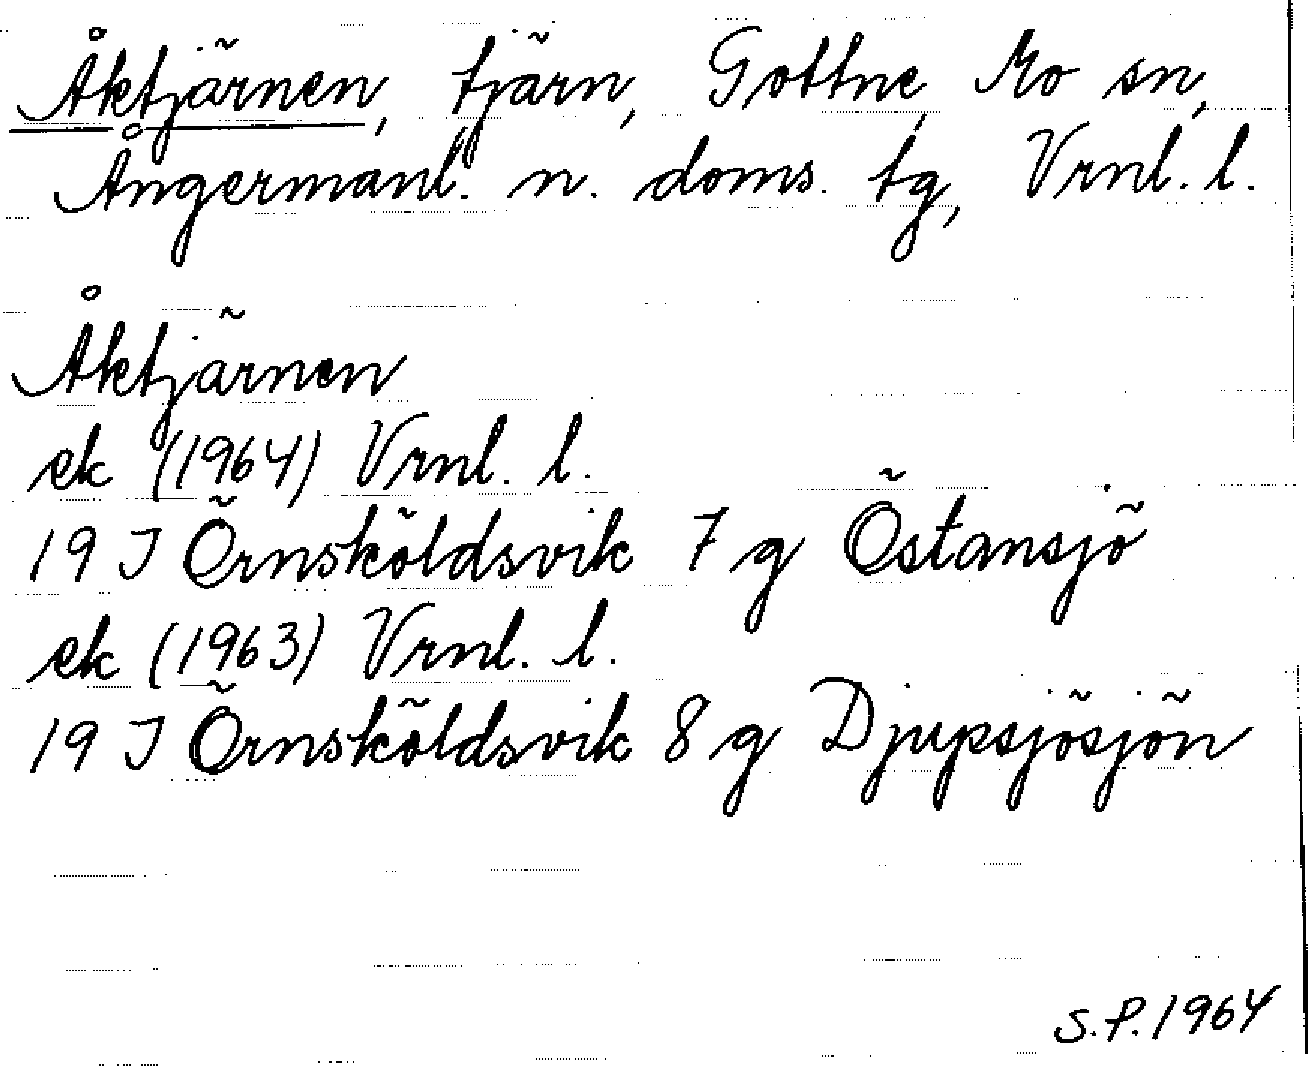 Åktjärnen, tjärn, Gottne, Mo sn,
Ångermanl. n. doms. tg, Vrnl. l.
Åktjärnen
ek (1964) Vrnl. l.
19 J Örnsköldsvik 7 g Östansjö
ek (1963) Vrnl. l.
19 J Örnsköldsvik 8 g Djupsjösjön
S.P. 1964